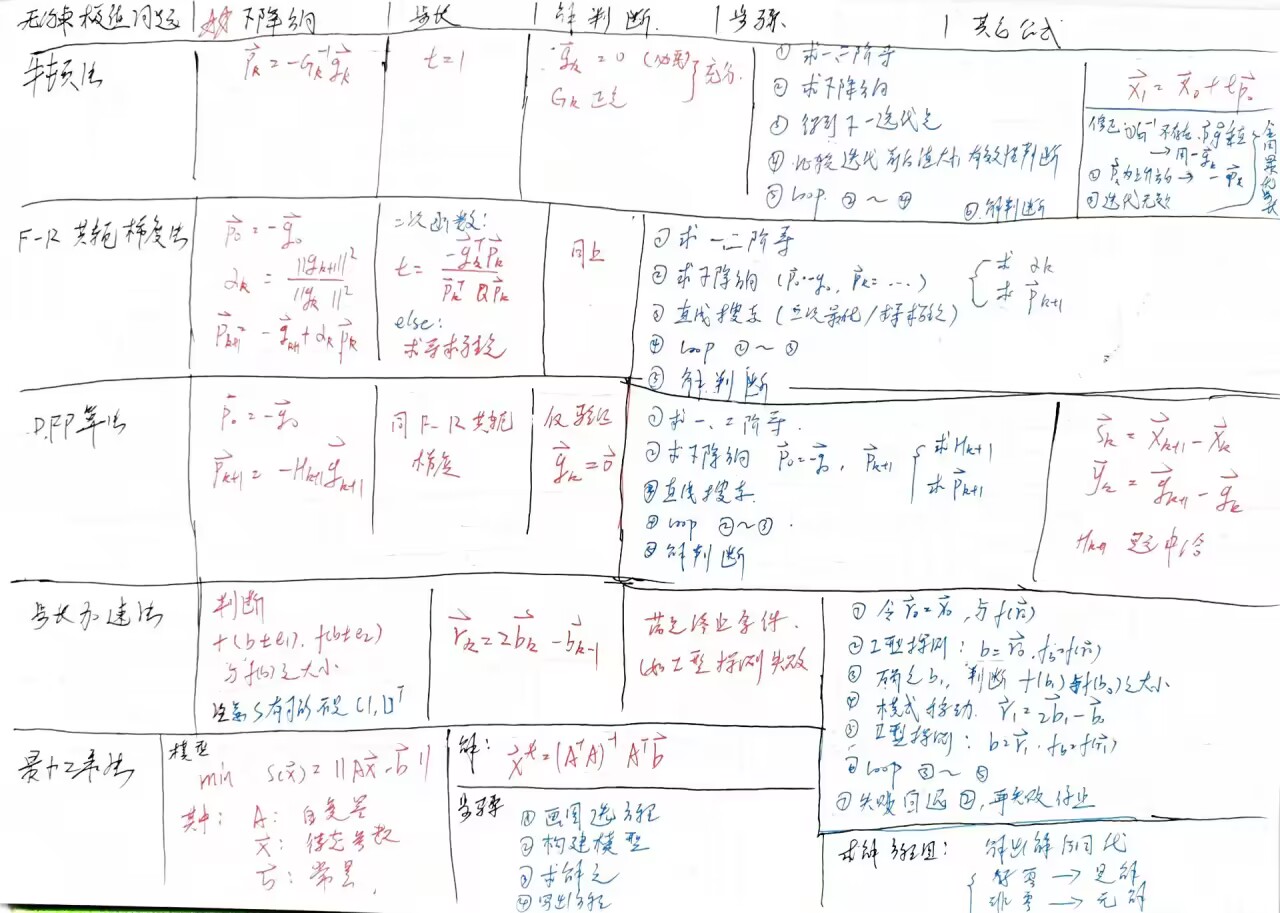 无约束极值问题 | 下降方向 | 步长 | 解判断 | 步骤 | 其它公式
牛顿法
p⃗k = -Gk⁻¹g⃗k
t = 1
g⃗k = 0 (必要) } 充分
Gk 正定
① 求一二阶导
② 求下降方向
③ 得到下一迭代点
④ 比较迭代前后值大小 有效性判断
⑤ loop ②~④ ⑥ 解判断
x⃗1 = x⃗0 + tp⃗0
修正: ① G⁻¹不存在
→ 用 -g⃗k
② p⃗k为上升方向 → -p⃗k
③ 迭代无效
F-R 共轭梯度法
p⃗0 = -g⃗0
αk = ||gk+1||² / ||gk||²
p⃗k+1 = -g⃗k+1 + αk p⃗k
二次函数:
t = -g⃗kᵀp⃗k / p⃗kᵀQp⃗k
else:
求导求极值
同上
① 求一二阶导
② 求下降方向 (p⃗0=-g⃗0, p⃗k=…) { 求 αk
求 p⃗k+1
③ 直线搜索 (二次最优化/求导求极值)
④ loop ②~③
⑤ 解判断
DFP算法
p⃗0 = -g⃗0
p⃗k+1 = -Hk+1g⃗k+1
同 F-R 共轭
梯度
仅验证
g⃗k = 0⃗
① 求一、二阶导.
② 求下降方向 p⃗0=-g⃗0, p⃗k+1 { 求Hk+1
求p⃗k+1
③ 直线搜索.
④ loop ②~③.
⑤ 解判断
s⃗k = x⃗k+1 - x⃗k
y⃗k = g⃗k+1 - g⃗k
Hk+1 题中给
步长加速法
判断
f(b±e1), f(b±e2)
与f(b)之大小
注意 S有可能不是 (1,1)ᵀ
r⃗k = 2b⃗k - b⃗k-1
满足终止条件.
(如 I型探测失败
① 令 r⃗0=x⃗0, 与 f(r⃗0)
② I型探测: b=r⃗0, fb=f(r⃗0)
③ 确定b1, 判断 f(b1)与f(b0)之大小
④ 模式移动. r⃗1=2b⃗1-b⃗0
⑤ II型探测: b=r⃗1, fb=f(r⃗1)
⑥ loop ③~⑤
⑦ 失败回退②, 再失败停止
最小二乘法
模型
min S(x⃗) = ||Ax⃗-b⃗||
其中: A: 自变量
x⃗: 待定参数
b⃗: 常量,
解: x⃗* = (AᵀA)⁻¹Aᵀb⃗
步骤 ① 画图选方程
② 构建模型
③ 求解之
④ 写出方程
求解方程组: 解出解后回代
{ 得零 → 是解
非零 → 无解